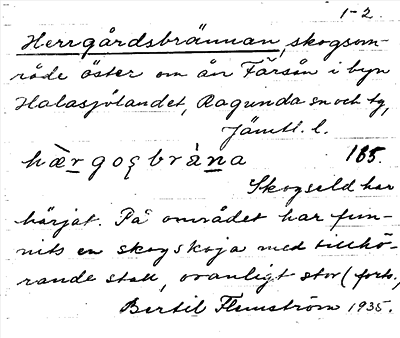 1-2.
Herrgårdsbrännan, skogsom-
råde öster om ån Färsån i byn
Halasjölandet, Ragunda sn och tg,
Jämtl. l.
hæ̀rgoʂbràna 185.
Skogseld har
härjat. På området har fun-
nits en skogskoja med tillhö-
rande stall, ovanligt stor (forts.,
Bertil Flemström 1935.